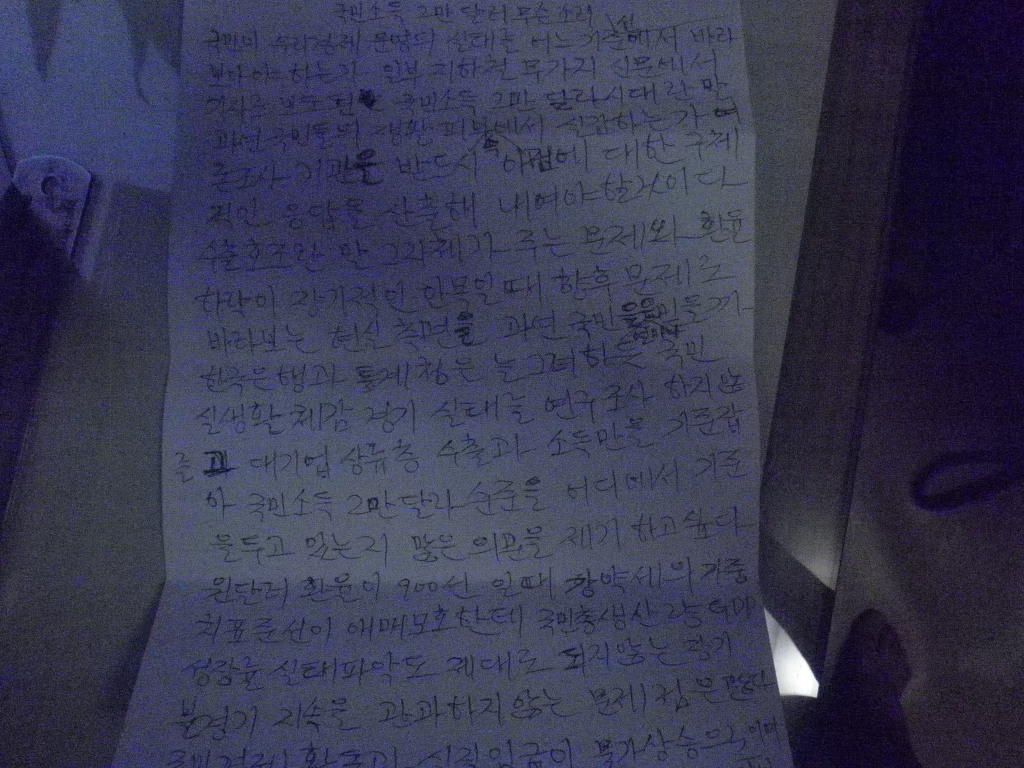 국민소득 2만 달러 무슨 소리
국민의 우리경제 운영의 실태는 어느 기준에서 바라
보아야 하는가 일부 지하철 무가지 신문에서
국민소득 2만 달라시대 란 말
과연 국민들의 생활 피부에서 실감하는가 여
론조사 기관을 반드시 이점에 대한 구체
적인 응답을 산출해 내여야 할거이다
수출호조란 말 그자체가 주는 문제와 환율
하락이 장기적인 안목일때 향후 문제로
바라보는 현실 측면을 과연 국민
한국은행과 통계청은 늘 그려하듯 국민
실생활 체감 경기 실태는 연구조사 하지않
고 대기업 상류층 수출과 소득만을 기준잡
아 국민소득 2만달라 수준을 어디에서 기준
을두고 있는지 많은 의문을 제기 하고싶다
원달러 환율이 900선 일때 강약세의 기준
치표준선이 애매모호한데 국민총생산
성장률 실태파악도 제대로 되지않는 장기
불경기 지속을 간과하지 않는 문제점은
실질임금이 물가상승으로